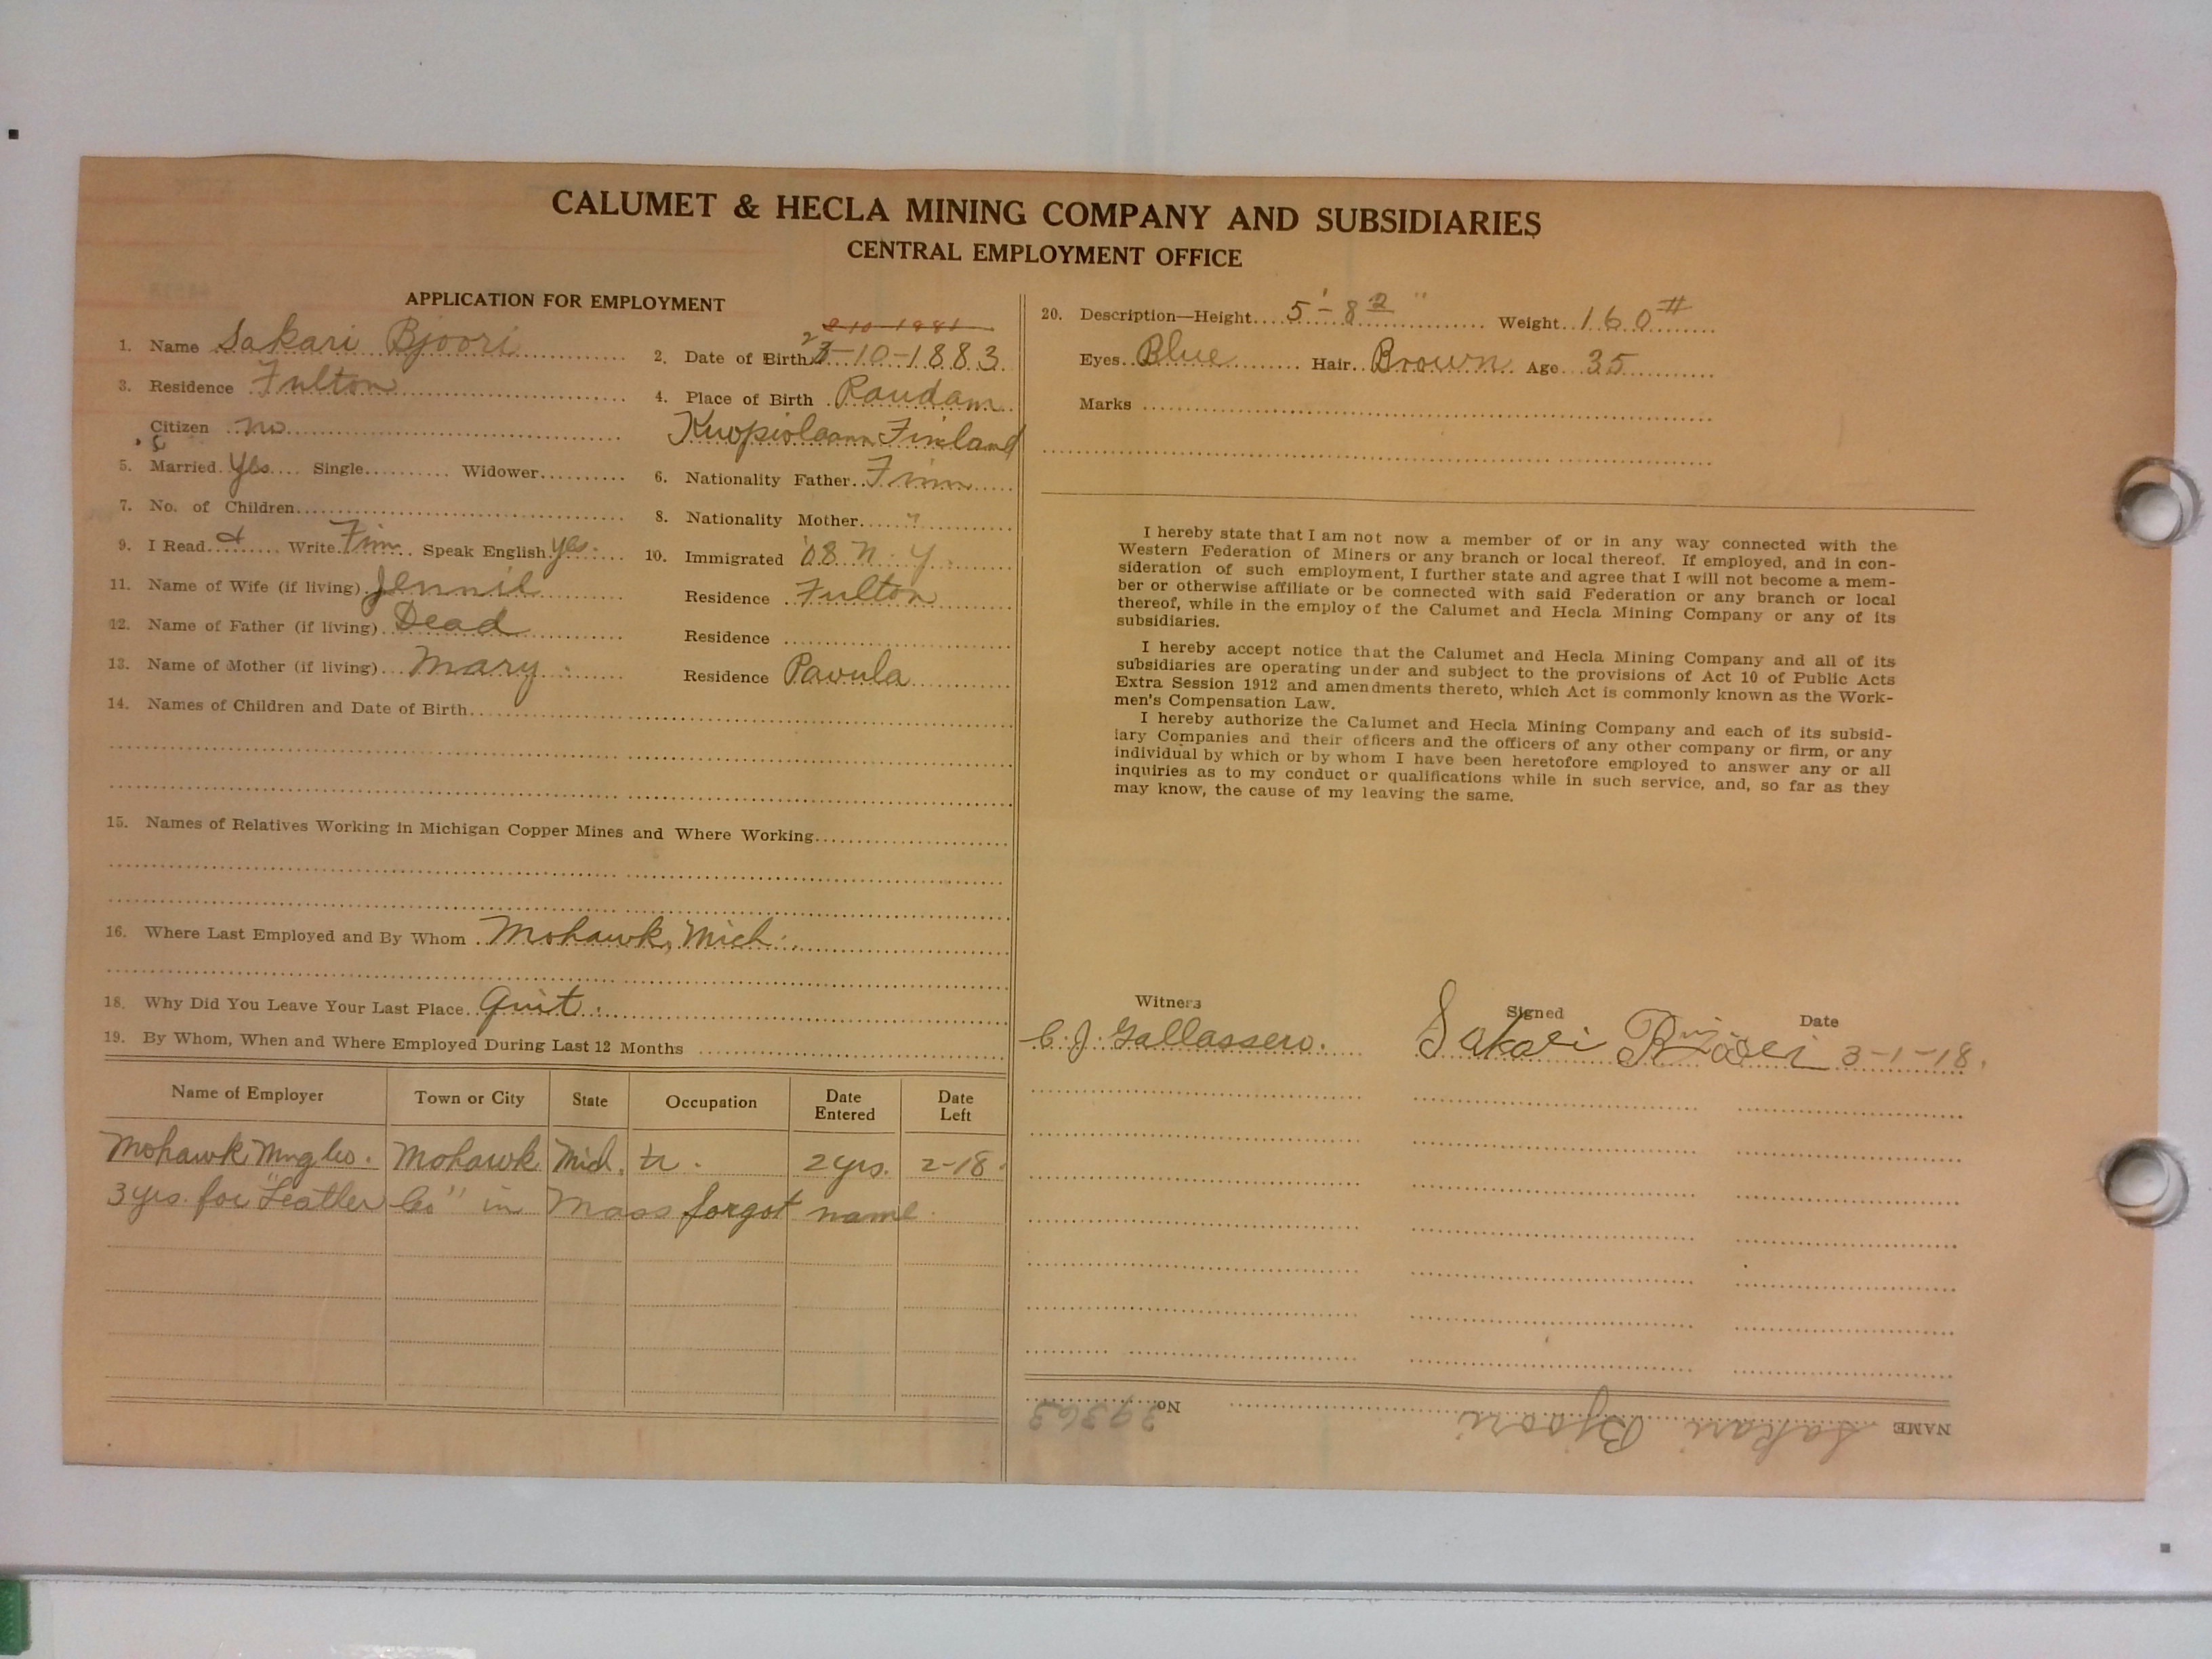 CALUMET & HECLA MINING COMPANY AND SUBSIDIARIES
CENTRAL EMPLOYMENT OFFICE
APPLICATION FOR EMPLOYMENT
1. Name Sakari Bjoori
2. Date of Birth 2-10-1883
3. Residence Fulton
4. Place of Birth Raudam
Citizen no
Kuopiolaann Finland
5. Married Yes Single Widower
6. Nationality Father Finn
7. No. of Children
8. Nationality Mother "
9. I Read & Write Finn Speak English yes.
10. Immigrated '08 N. Y.
11. Name of Wife (if living) Jennie
Residence Fulton
12. Name of Father (if living) Dead
Residence
13. Name of Mother (if living) Mary
Residence Pavula
14. Names of Children and Date of Birth
15. Names of Relatives Working in Michigan Copper Mines and Where Working
16. Where Last Employed and By Whom Mohawk, Mich.
18. Why Did You Leave Your Last Place Quit.
19. By Whom, When and Where Employed During Last 12 Months
Name of Employer Town or City State Occupation Date Entered Date Left
Mohawk Mng Co. Mohawk Mich. tr. 2 yrs. 2-18.
3 yrs. for "Leather Co" in Mass forgot name
20. Description—Height 5'-8 2/2" Weight 160#
Eyes Blue Hair Brown Age 35
Marks
I hereby state that I am not now a member of or in any way connected with the
Western Federation of Miners or any branch or local thereof. If employed, and in con-
sideration of such employment, I further state and agree that I will not become a mem-
ber or otherwise affiliate or be connected with said Federation or any branch or local
thereof, while in the employ of the Calumet and Hecla Mining Company or any of its
subsidiaries.
I hereby accept notice that the Calumet and Hecla Mining Company and all of its
subsidiaries are operating under and subject to the provisions of Act 10 of Public Acts
Extra Session 1912 and amendments thereto, which Act is commonly known as the Work-
men's Compensation Law.
I hereby authorize the Calumet and Hecla Mining Company and each of its subsid-
iary Companies and their officers and the officers of any other company or firm, or any
individual by which or by whom I have been heretofore employed to answer any or all
inquiries as to my conduct or qualifications while in such service, and, so far as they
may know, the cause of my leaving the same.
Witness Signed Date
C. J. Gallassero. Sakari 3-1-18.
NAME Sakari Bjoori No. 39363